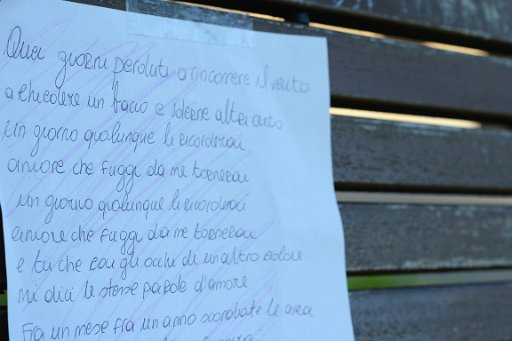 Quei giorni perduti a rincorrere il vento
a chiederci un bacio e volerne altri cento
un giorno qualunque li ricorderai
amore che fuggi da me tornerai
un giorno qualunque li ricorderai
amore che fuggi da me tornerai
e tu che con gli occhi di un altro colore
mi dici le stesse parole d'amore
Fra un mese fra un anno scordate le avrai